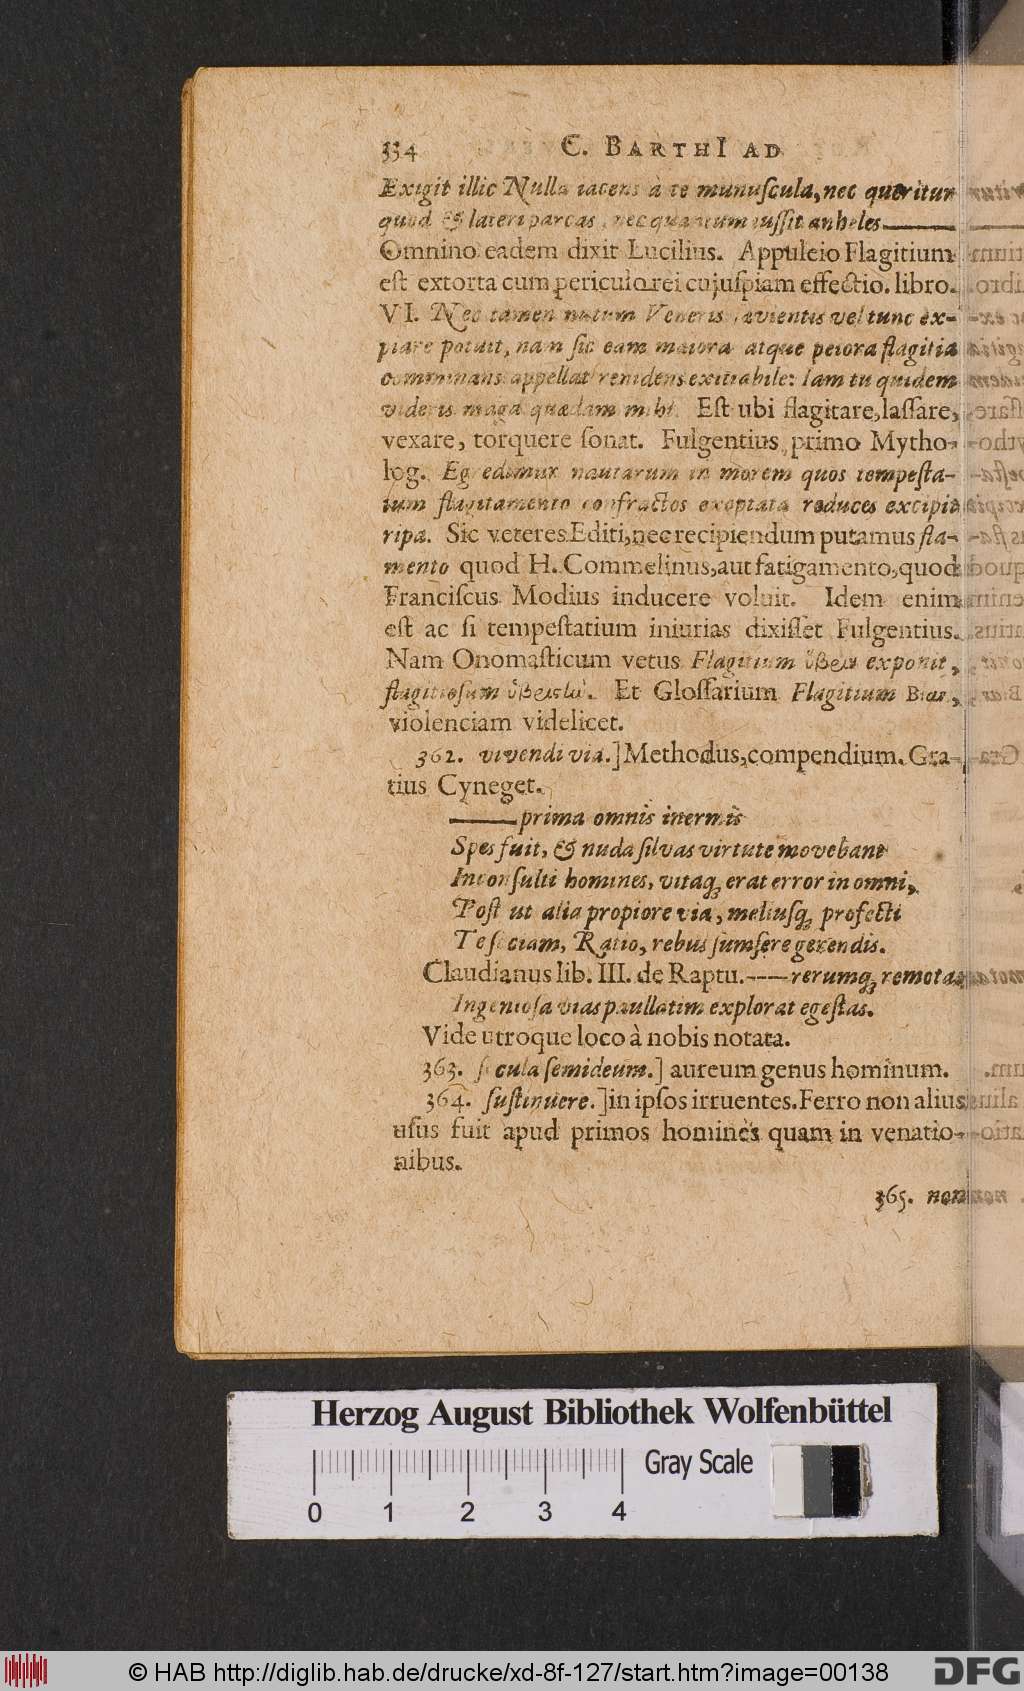 334 C. BARTHI AD
Exigit illic Nulla iacens à te munuſcula, nec queritur
quod & lateri parcas, nec quantum iuſſit anheles———
Omnino eadem dixit Lucilius. Appuleio Flagitium
eſt extorta cum periculo rei cujuſpiam effectio. libro.
VI. Nec tamen nutum Veneris ſævientis vel tunc ex-
piare potuit, nam ſic eam maiora atque peiora flagitia
comminans appellat renidens exitiabile: Iam tu quidem
videris maga quædam mihi. Eſt ubi flagitare, laſſare,
vexare, torquere ſonat. Fulgentius primo Mytho-
log. Egredimur nautarum in morem quos tempeſta-
tum flagitamento confractos exoptata reduces excipit
ripa. Sic veteres Editi, nec recipiendum putamus fla-
mento quod H. Commelinus, aut fatigamento, quod
Franciſcus Modius inducere voluit. Idem enim
eſt ac ſi tempeſtatium iniurias dixiſſet Fulgentius.
Nam Onomaſticum vetus Flagitium ὕβρει exponit,
flagitioſum . Et Gloſſarium Flagitium Βίαν,
violenciam videlicet.
362. vivendi via.] Methodus, compendium. Gra-
tius Cyneget.
——— prima omnis inermis
Spes fuit, & nuda ſilvas virtute movebant
Inconſulti homines, vitaq; erat error in omni,
Poſt ut alia propiore via, meliuſq; profecti
Te ſociam, Ratio, rebus ſumſere gerendis.
Claudianus lib. III. de Raptu.----rerumq; remotas
Ingenioſa vias paullatim explorat egeſtas.
Vide utroque loco à nobis notata.
363. ſecula ſemideum.] aureum genus hominum.
364. ſuſtinuere.] in ipſos irruentes. Ferro non alius
uſus fuit apud primos homines quam in venatio-
nibus.
365. non
Herzog August Bibliothek Wolfenbüttel
Gray Scale
0 1 2 3 4
© HAB http://diglib.hab.de/drucke/xd-8f-127/start.htm?image=00138
DFG